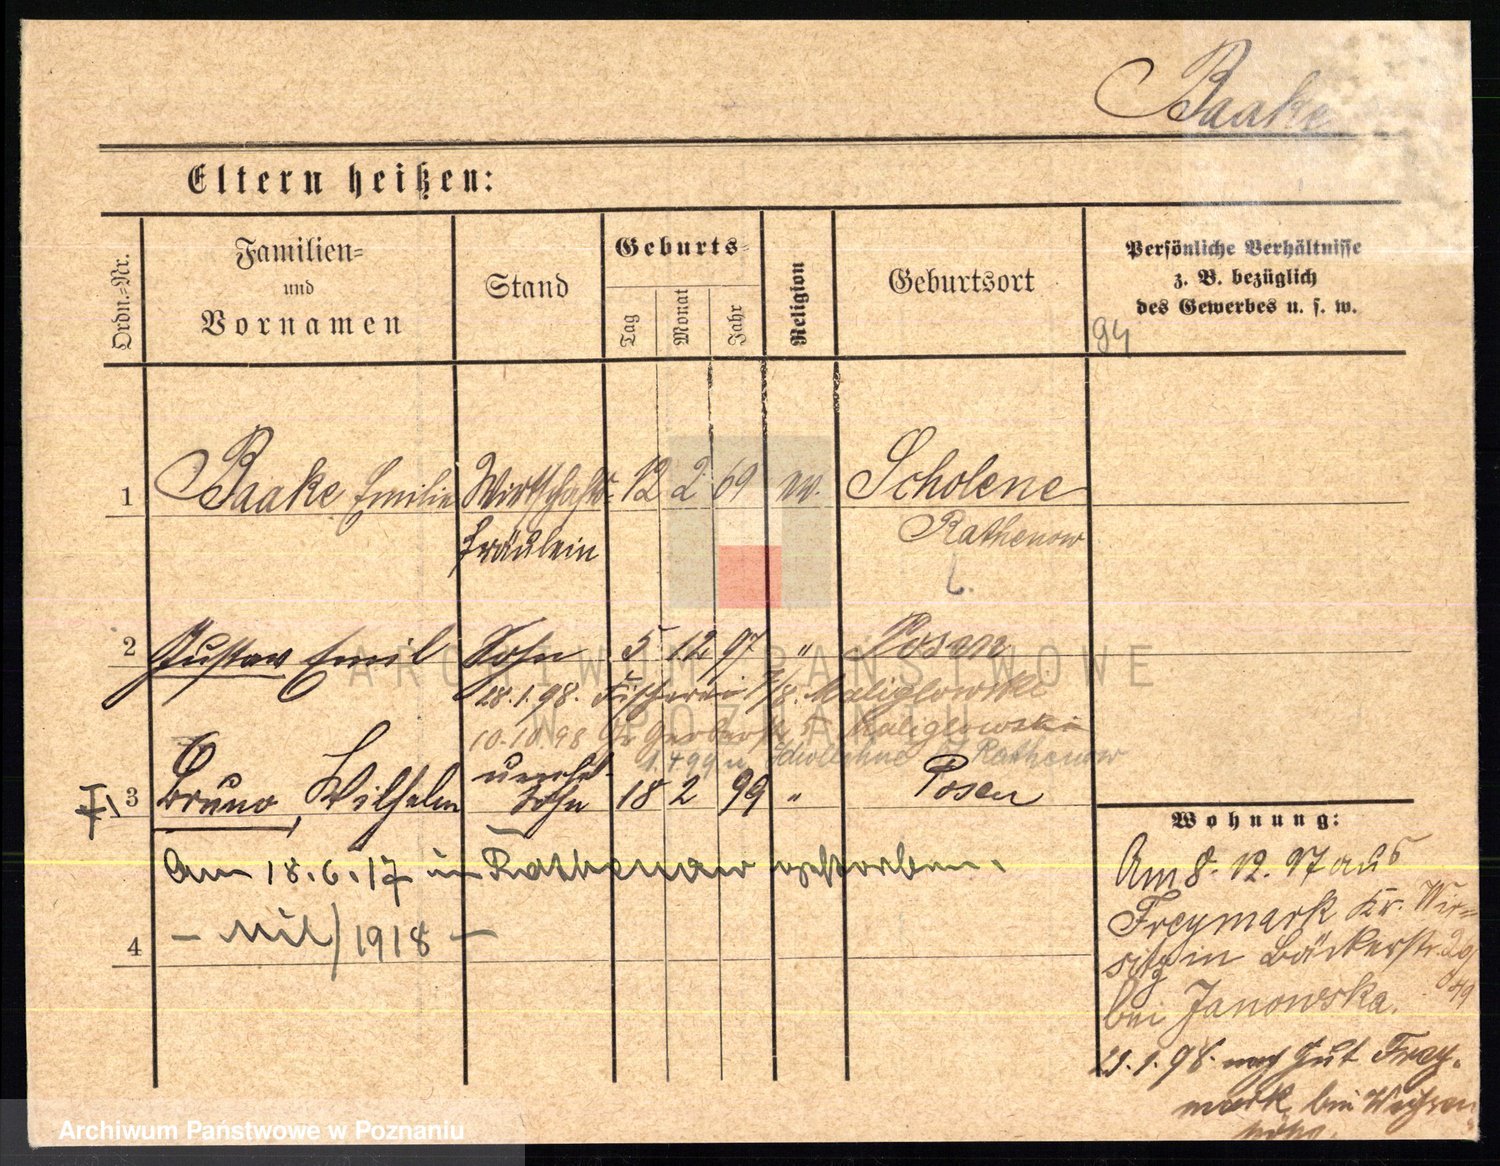 Baake
Eltern heißen:
Ordn.-Nr.
Familien-
und
Vornamen
Stand
Geburts-
Tag
Monat
Jahr
Religion
Geburtsort
Persönliche Verhältnisse
z. B. bezüglich
des Gewerbes u. s. w.
94
1 Baake Emilie Wirtschafts- 12 2 69 ev. Scholene
fräulein Rathenow
2 Gustav Emil Sohn 5 12 97 " Posen
28.1.98. Maliglowski
10.10.98 Gr Gerberstr 5 Maliglowski
1.4.99 n Rathenow
3 Bruno, Wilhelm unehel. Sohn 18 2 99 " Posen
Am 18.6.17 in Rathenow gestorben.
4 - Mil/1918 -
Wohnung:
Am 8.12.97 aus
Freymark Kr. Wir-
sitz in Bäckerstr. 20
bei Janowska.
21.1.98 nach Gut Frey-
mark bei Weißen
höhe.
ARCHIWUM PAŃSTWOWE
W POZNANIU
Archiwum Państwowe w Poznaniu